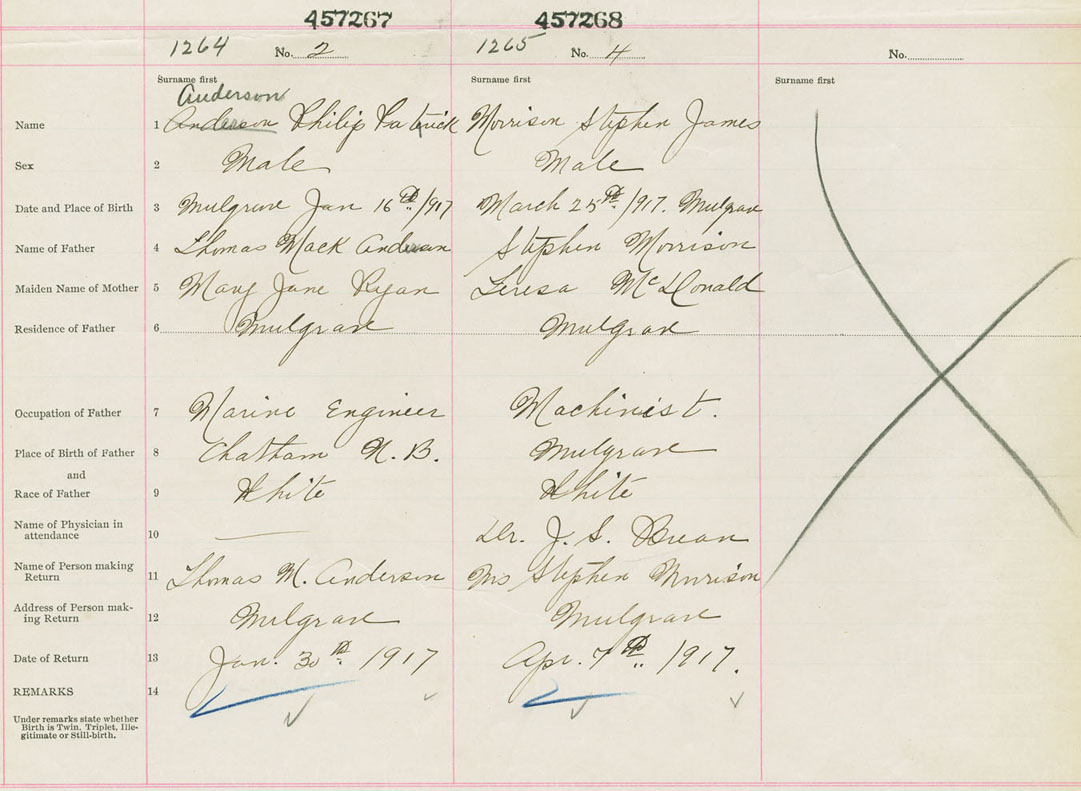 457267 457268
1264 No. 2 1265 No. 4 No.
Surname first Surname first Surname first
Anderson
Name 1 Anderson Philip Patrick Morrison Stephen James
Sex 2 Male Male
Date and Place of Birth 3 Mulgrave Jan 16th/917 March 25th/917. Mulgrave
Name of Father 4 Thomas Mack Anderson Stephen Morrison
Maiden Name of Mother 5 Mary Jane Ryan Teresa McDonald
Residence of Father 6 Mulgrave Mulgrave
Occupation of Father 7 Marine Engineer Machinist.
Place of Birth of Father 8 Chatham N. B. Mulgrave
and
Race of Father 9 White White
Name of Physician in
attendance 10 Dr. J. S.
Name of Person making
Return 11 Thomas M. Anderson Mrs Stephen Morrison
Address of Person mak-
ing Return 12 Mulgrave Mulgrave
Date of Return 13 Jan. 30th. 1917 Apr. 7th. 1917.
REMARKS 14
Under remarks state whether
Birth is Twin, Triplet, Ille-
gitimate or Still-birth.